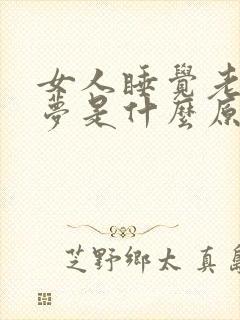 女人睡覺老
夢是什麼原
芝野鄉太 真島